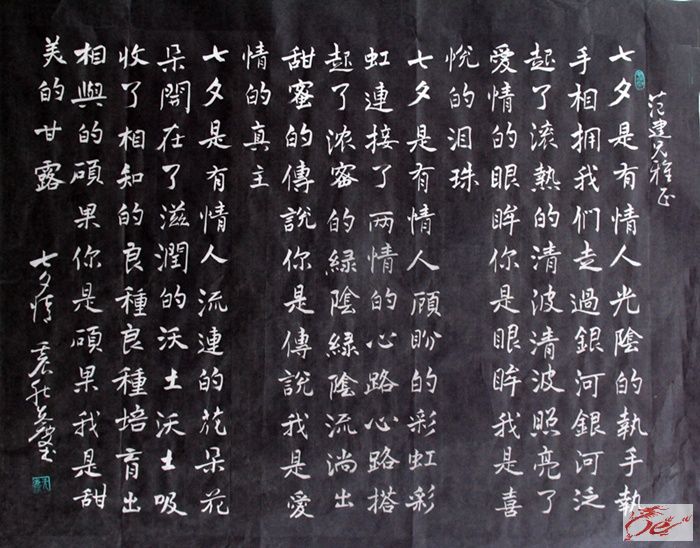 范建兄雅正
七夕是有情人光陰的執手執
手相拥我们走過銀河銀河泛
起了滚熱的清波清波照亮了
愛情的眼眸你是眼眸我是喜
悅的泪珠
七夕是有情人顾盼的彩虹彩
虹連接了两情的心路心路搭
起了浓密的緑陰緑陰流淌出
甜蜜的傳説你是傳説我是愛
情的真主
七夕是有情人流連的花朵花
朵開在了滋潤的沃土沃土吸
收了相知的良種良種培育出
相與的碩果你是碩果我是甜
美的甘露
七夕情 袁秋